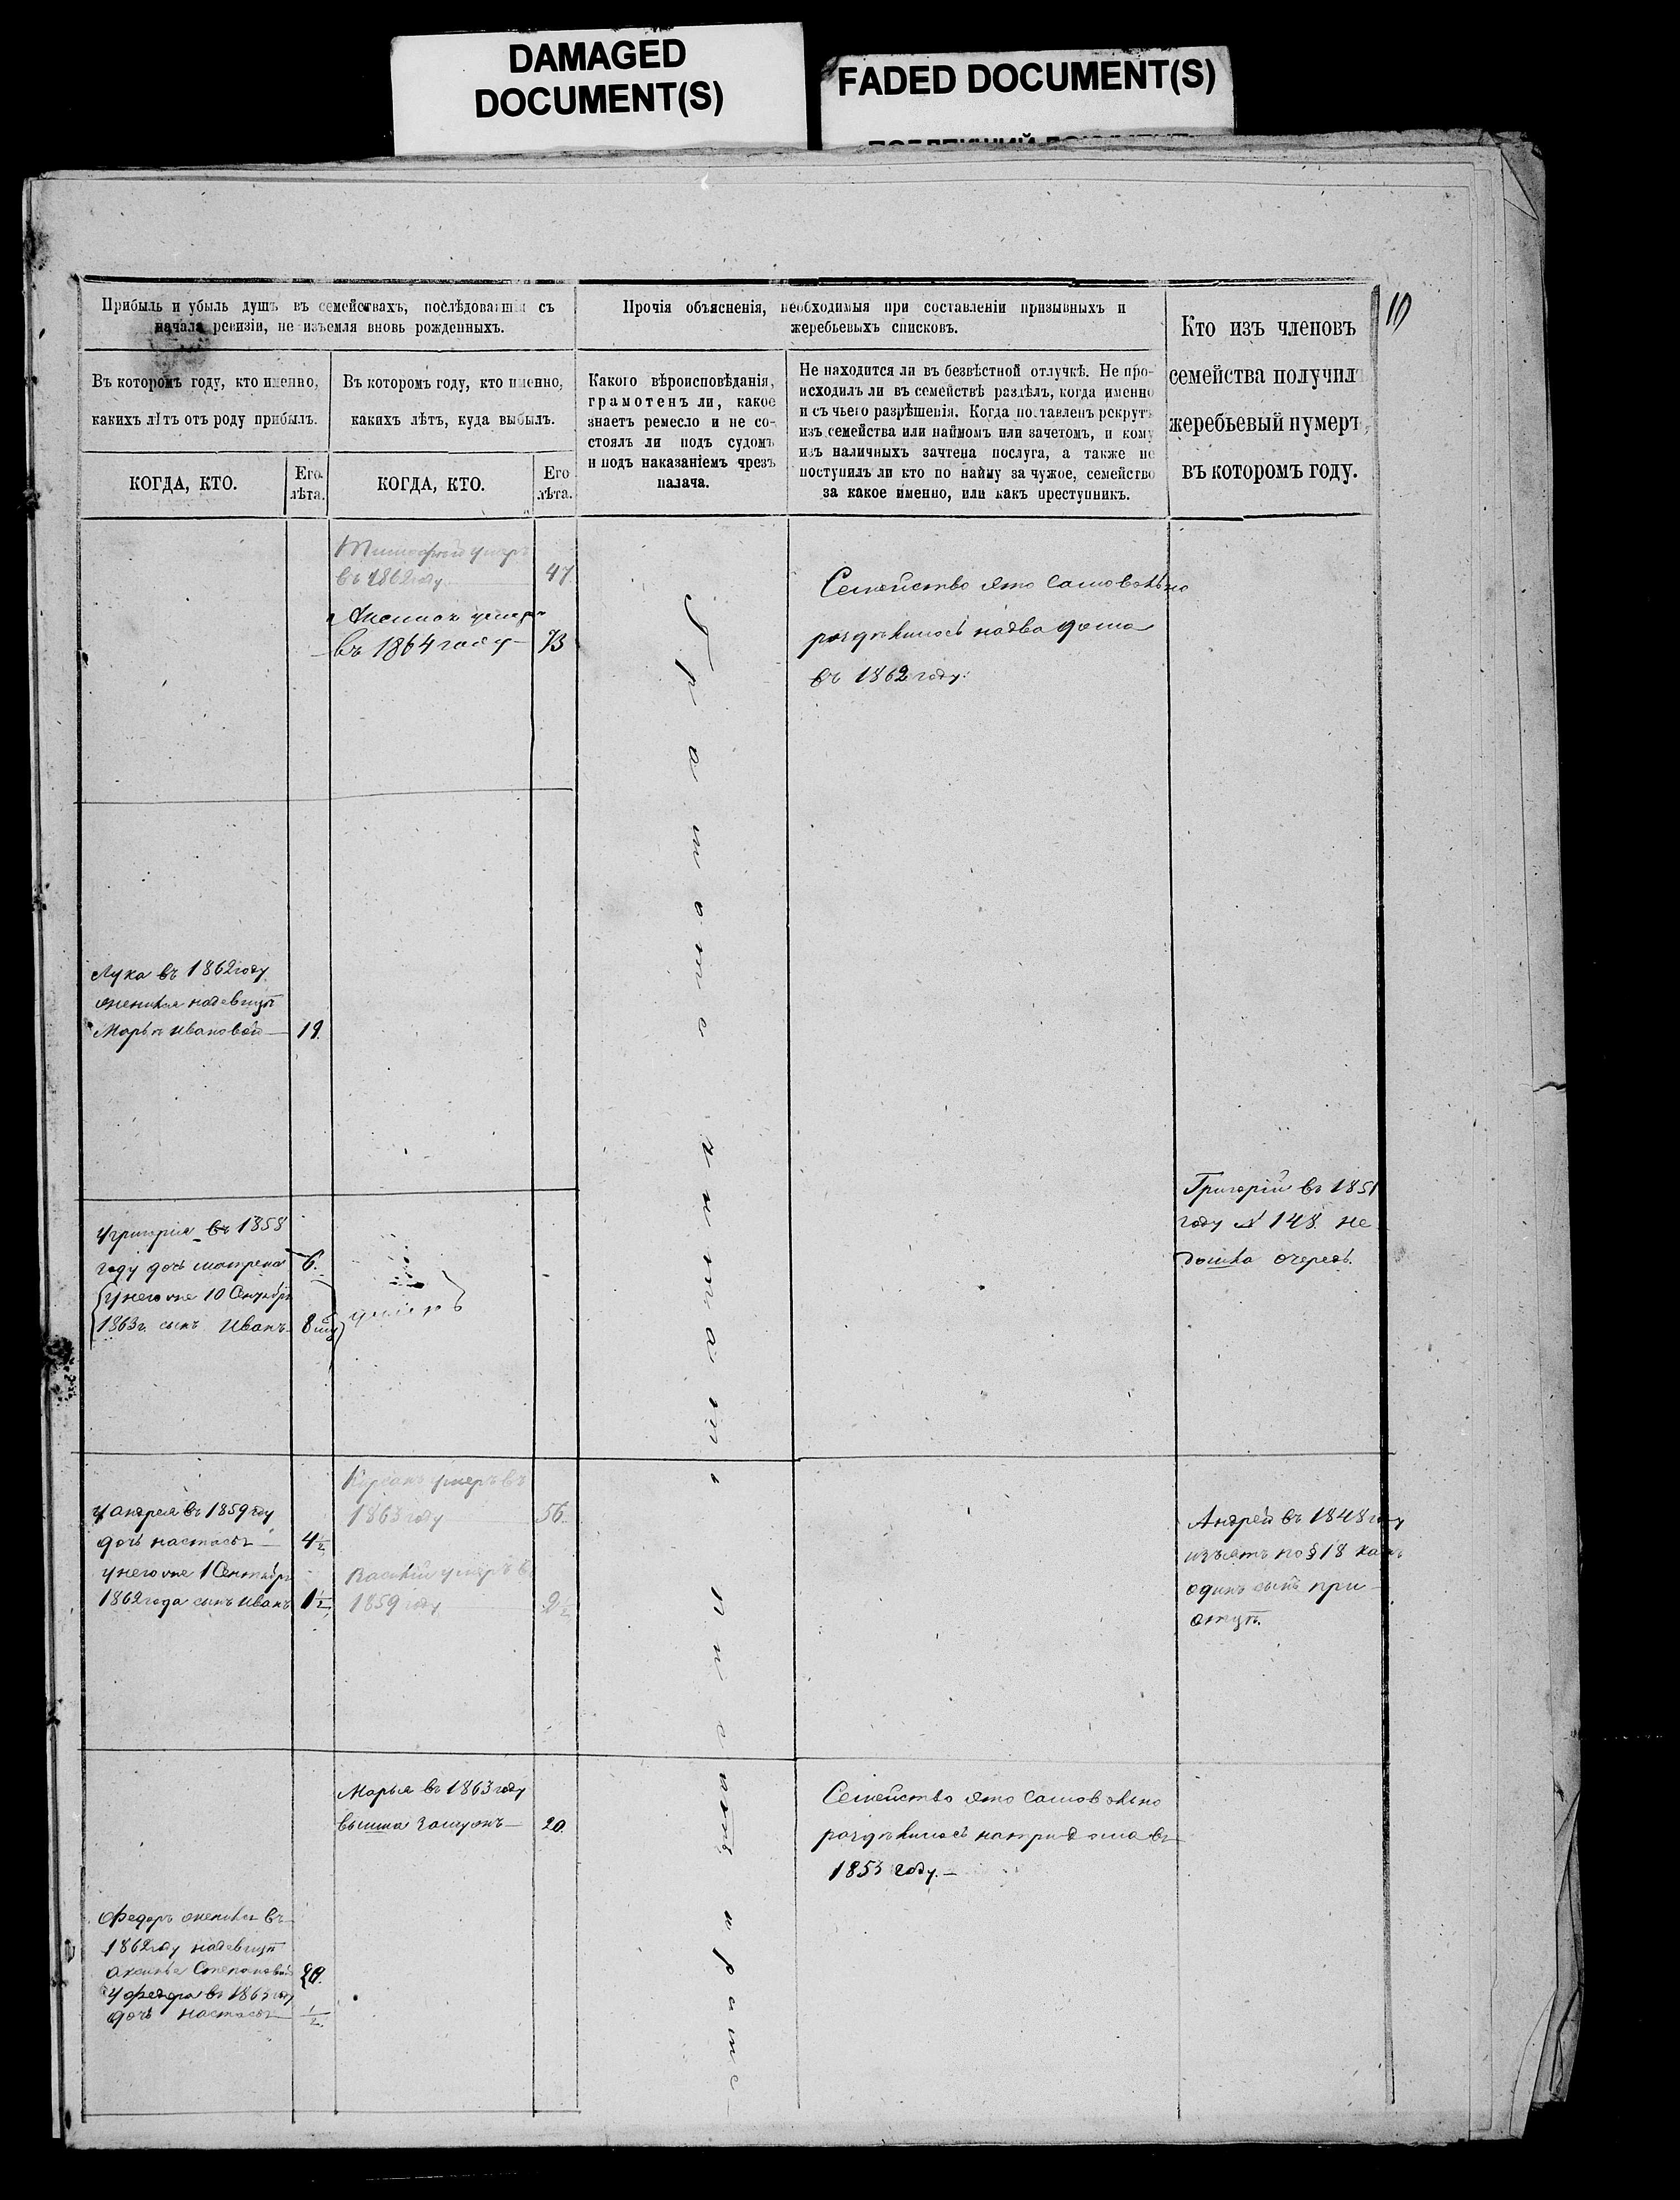 DAMAGED
DOCUMENT(S)
FADED DOCUMENT(S)
10
Прибыль и убыль душъ въ семействахъ, послѣдовавшія съ
начала ревизіи, не изъемля вновь рожденныхъ.
Въ которомъ году, кто именно,
какихъ лѣтъ отъ роду прибылъ.
КОГДА, КТО.
Его лѣта.
Въ которомъ году, кто именно,
какихъ лѣтъ, куда выбылъ.
КОГДА, КТО.
Его лѣта.
Прочія объясненія, необходимыя при составленіи призывныхъ и
жеребьевыхъ списковъ.
Какого вѣроисповѣданія,
грамотенъ ли, какое
знаетъ ремесло и не со-
стоялъ ли подъ судомъ
и подъ наказаніемъ чрезъ
палача.
Не находится ли въ безвѣстной отлучкѣ. Не про-
исходилъ ли въ семействѣ раздѣлъ, когда именно
и съ чьего разрѣшенія. Когда поставленъ рекрутъ
изъ семейства или наймомъ или зачетомъ, и кому
изъ наличныхъ зачтена послуга, а также не
поступилъ ли кто по найму за чужое, семейство
за какое именно, или какъ преступникъ.
Кто изъ членовъ
семейства получилъ
жеребьевый нумеръ,
въ которомъ году.
умеръ
въ 1862 году 47
умеръ
въ 1864 году 73
Семейство это самовольно
раздѣлилось на два дома
въ 1862 году.
Лука въ 1862 году
женился на девицѣ
Марьѣ Ивановой 19.
У Григорія въ 1858
году дочь Матрена 6.
У него же 10 Сентября
1863 г. сынъ Иванъ 8
Григорій въ 1851
году № 148 не
дошла очередь.
У Андрея въ 1859 году
дочь Настасья 4 1/2
У него же 1 Сентября
1862 года сынъ Иванъ 1 1/2
умеръ въ
1863 году 56
Василій умеръ въ
1859 году 2 1/2
Андрей въ 1848 году
изъятъ по § 18 какъ
одинъ сынъ при
отцѣ.
Марья въ 1863 году
вышла замужъ 20.
Семейство это самовольно
раздѣлилось на три дома въ
1853 году.
Федоръ женился въ
1862 году на девицѣ
Аксинье Степановой
У Федора въ 1863 году
дочь Настасья 1/2
Грамоте читать и писать